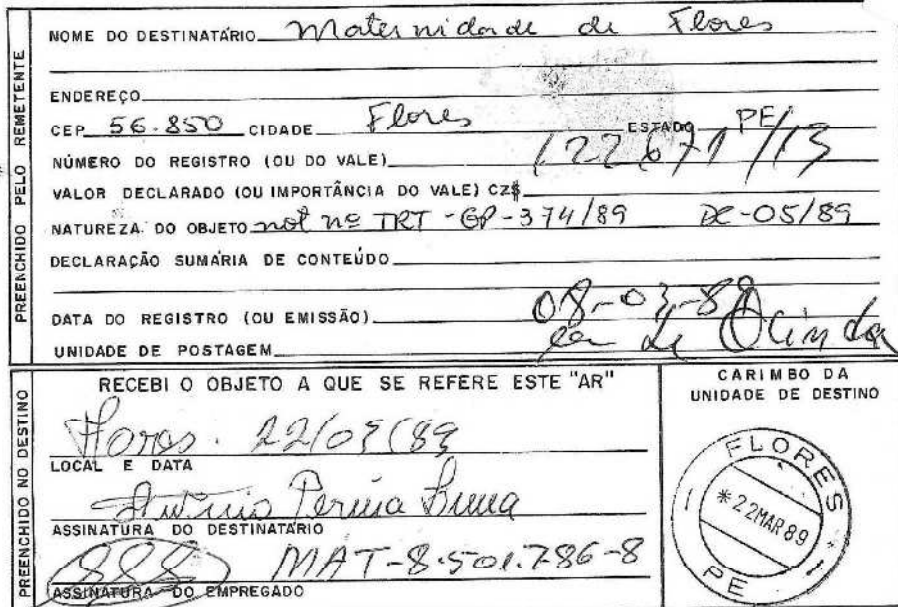 PREENCHIDO PELO REMETENTE
NOME DO DESTINATÁRIO Maternidade de Flores
ENDEREÇO
CEP 56.850 CIDADE Flores ESTADO PE
NÚMERO DO REGISTRO (OU DO VALE) 122671/13
VALOR DECLARADO (OU IMPORTÂNCIA DO VALE) CZ$
NATUREZA DO OBJETO not nº TRT-GP-374/89 DC-05/89
DECLARAÇÃO SUMÁRIA DE CONTEÚDO
DATA DO REGISTRO (OU EMISSÃO) 08-03-89
UNIDADE DE POSTAGEM de Olinda
PREENCHIDO NO DESTINO
RECEBI O OBJETO A QUE SE REFERE ESTE "AR"
Flores. 22/03/89
LOCAL E DATA
ASSINATURA DO DESTINATÁRIO
MAT-8.501.786-8
ASSINATURA DO EMPREGADO
CARIMBO DA
UNIDADE DE DESTINO
FLORES
*22MAR89
PE